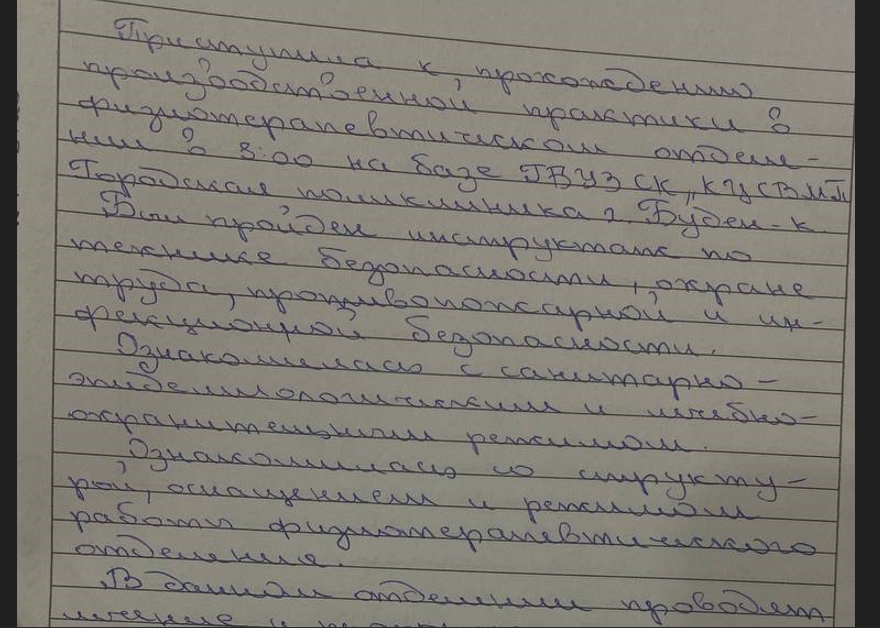 Приступила к прохождению
производственной практики в
физиотерапевтическом отделе-
нии в 8:00 на базе ГБУЗ СК „КЦСВМП
Городская поликлиника г. Буден-к
Был пройден инструктаж по
технике безопасности, охране
труда, противопожарной и ин-
фекционной безопасности.
Ознакомилась с санитарно-
эпидемиологическим и лечебно-
охранительным режимом.
Ознакомилась со структу-
рой, оснащением и режимом
работы физиотерапевтического
отделения.
В данном отделении проводят
лечение и